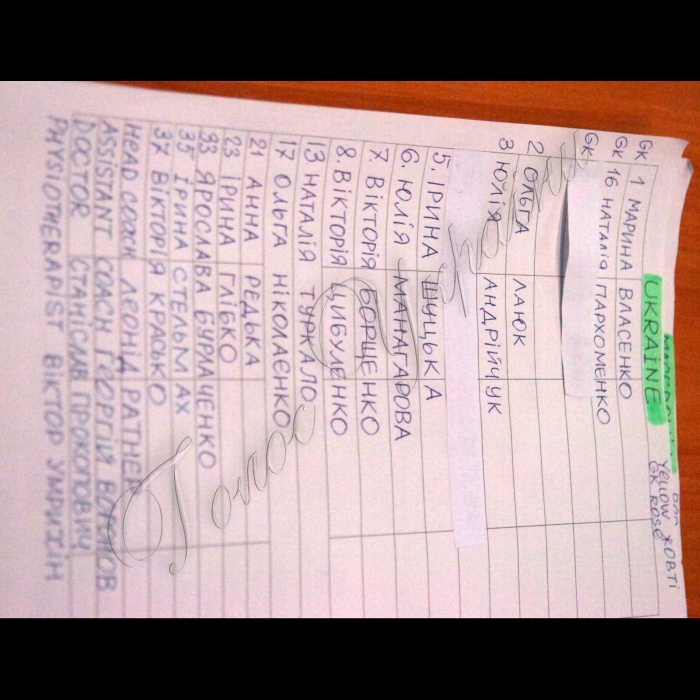 UKRAINE
YELLOW ЖОВТІ
GK ROSE
GK 1 МАРИНА ВЛАСЕНКО
GK 16 НАТАЛІЯ ПАРХОМЕНКО
GK
2 ОЛЬГА ЛАЮК
3 ЮЛІЯ АНДРІЙЧУК
5. ІРИНА ШУЦЬКА
6. ЮЛІЯ МАНАГАРОВА
7 ВІКТОРІЯ БОРЩЕНКО
8. ВІКТОРІЯ ЦИБУЛЕНКО
13 НАТАЛІЯ ТУРКАЛО
17 ОЛЬГА НІКОЛАЄНКО
21 АННА РЕДЬКА
23 ІРИНА ГЛІБКО
33 ЯРОСЛАВА БУРЛАЧЕНКО
35 ІРИНА СТЕЛЬМАХ
37 ВІКТОРІЯ КРАСЬКО
HEAD COACH ЛЕОНІД РАТНЕР
ASSISTANT COACH ГЕОРГІЙ
DOCTOR СТАНІСЛАВ ПРОКОПОВИЧ
PHYSIOTHERAPIST ВІКТОР УМРИХІН
Голос